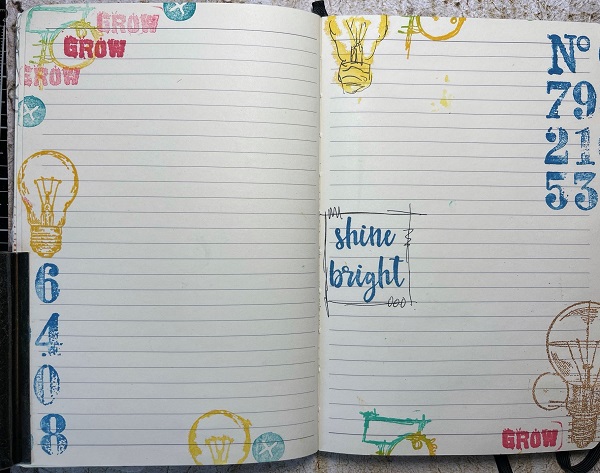 GROW
GROW
GROW
6
4
0
8
No
79
21
53
shine
bright
GROW